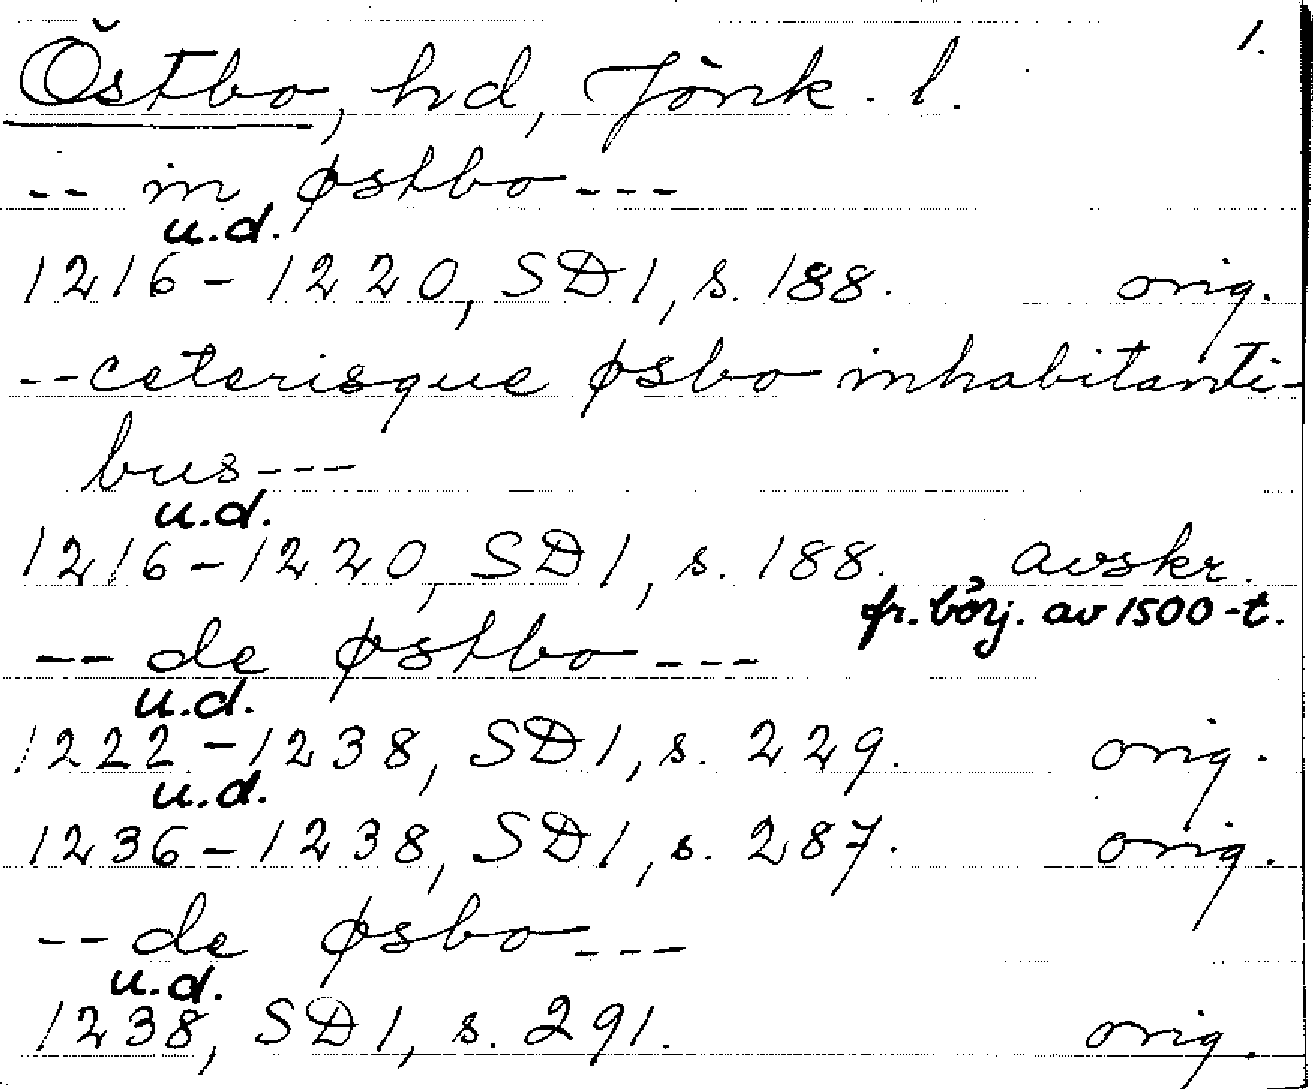 1.
Östbo, hd, Jönk. l.
-- in østbo ---
u.d.
1216-1220, SD1, s. 188. orig.
--ceterisque øsbo inhabitanti-
bus---
u.d.
1216-1220, SD1, s. 188. avskr.
fr. börj. av 1500-t.
-- de østbo ---
u.d.
1222-1238, SD1, s. 229. orig.
u.d.
1236-1238, SD1, s. 287. orig.
-- de øsbo ---
u.d.
1238, SD1, s. 291. orig.